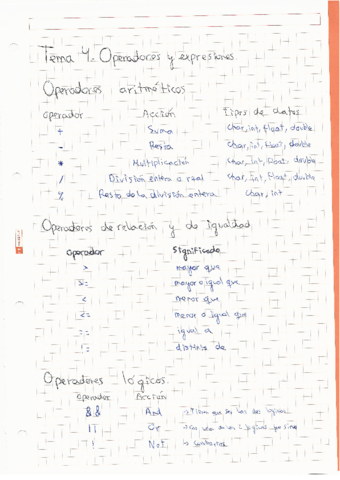 Tema 4. Operadores y expresiones
Operadores aritméticos
Operador Acción Tipos de datos
+ Suma char, int, float, double
- Resta char, int, float, double
* Multiplicación char, int, float, double
/ División entera o real char, int, float, double
% Resto de la división entera char, int
Operadores de relación y de igualdad
Operador Significado
> mayor que
>= mayor o igual que
< menor que
<= menor o igual que
== igual a
!= distinto de
Operadores lógicos
Operador Acción
&& And que los dos
|| Or
! Not lo contrario